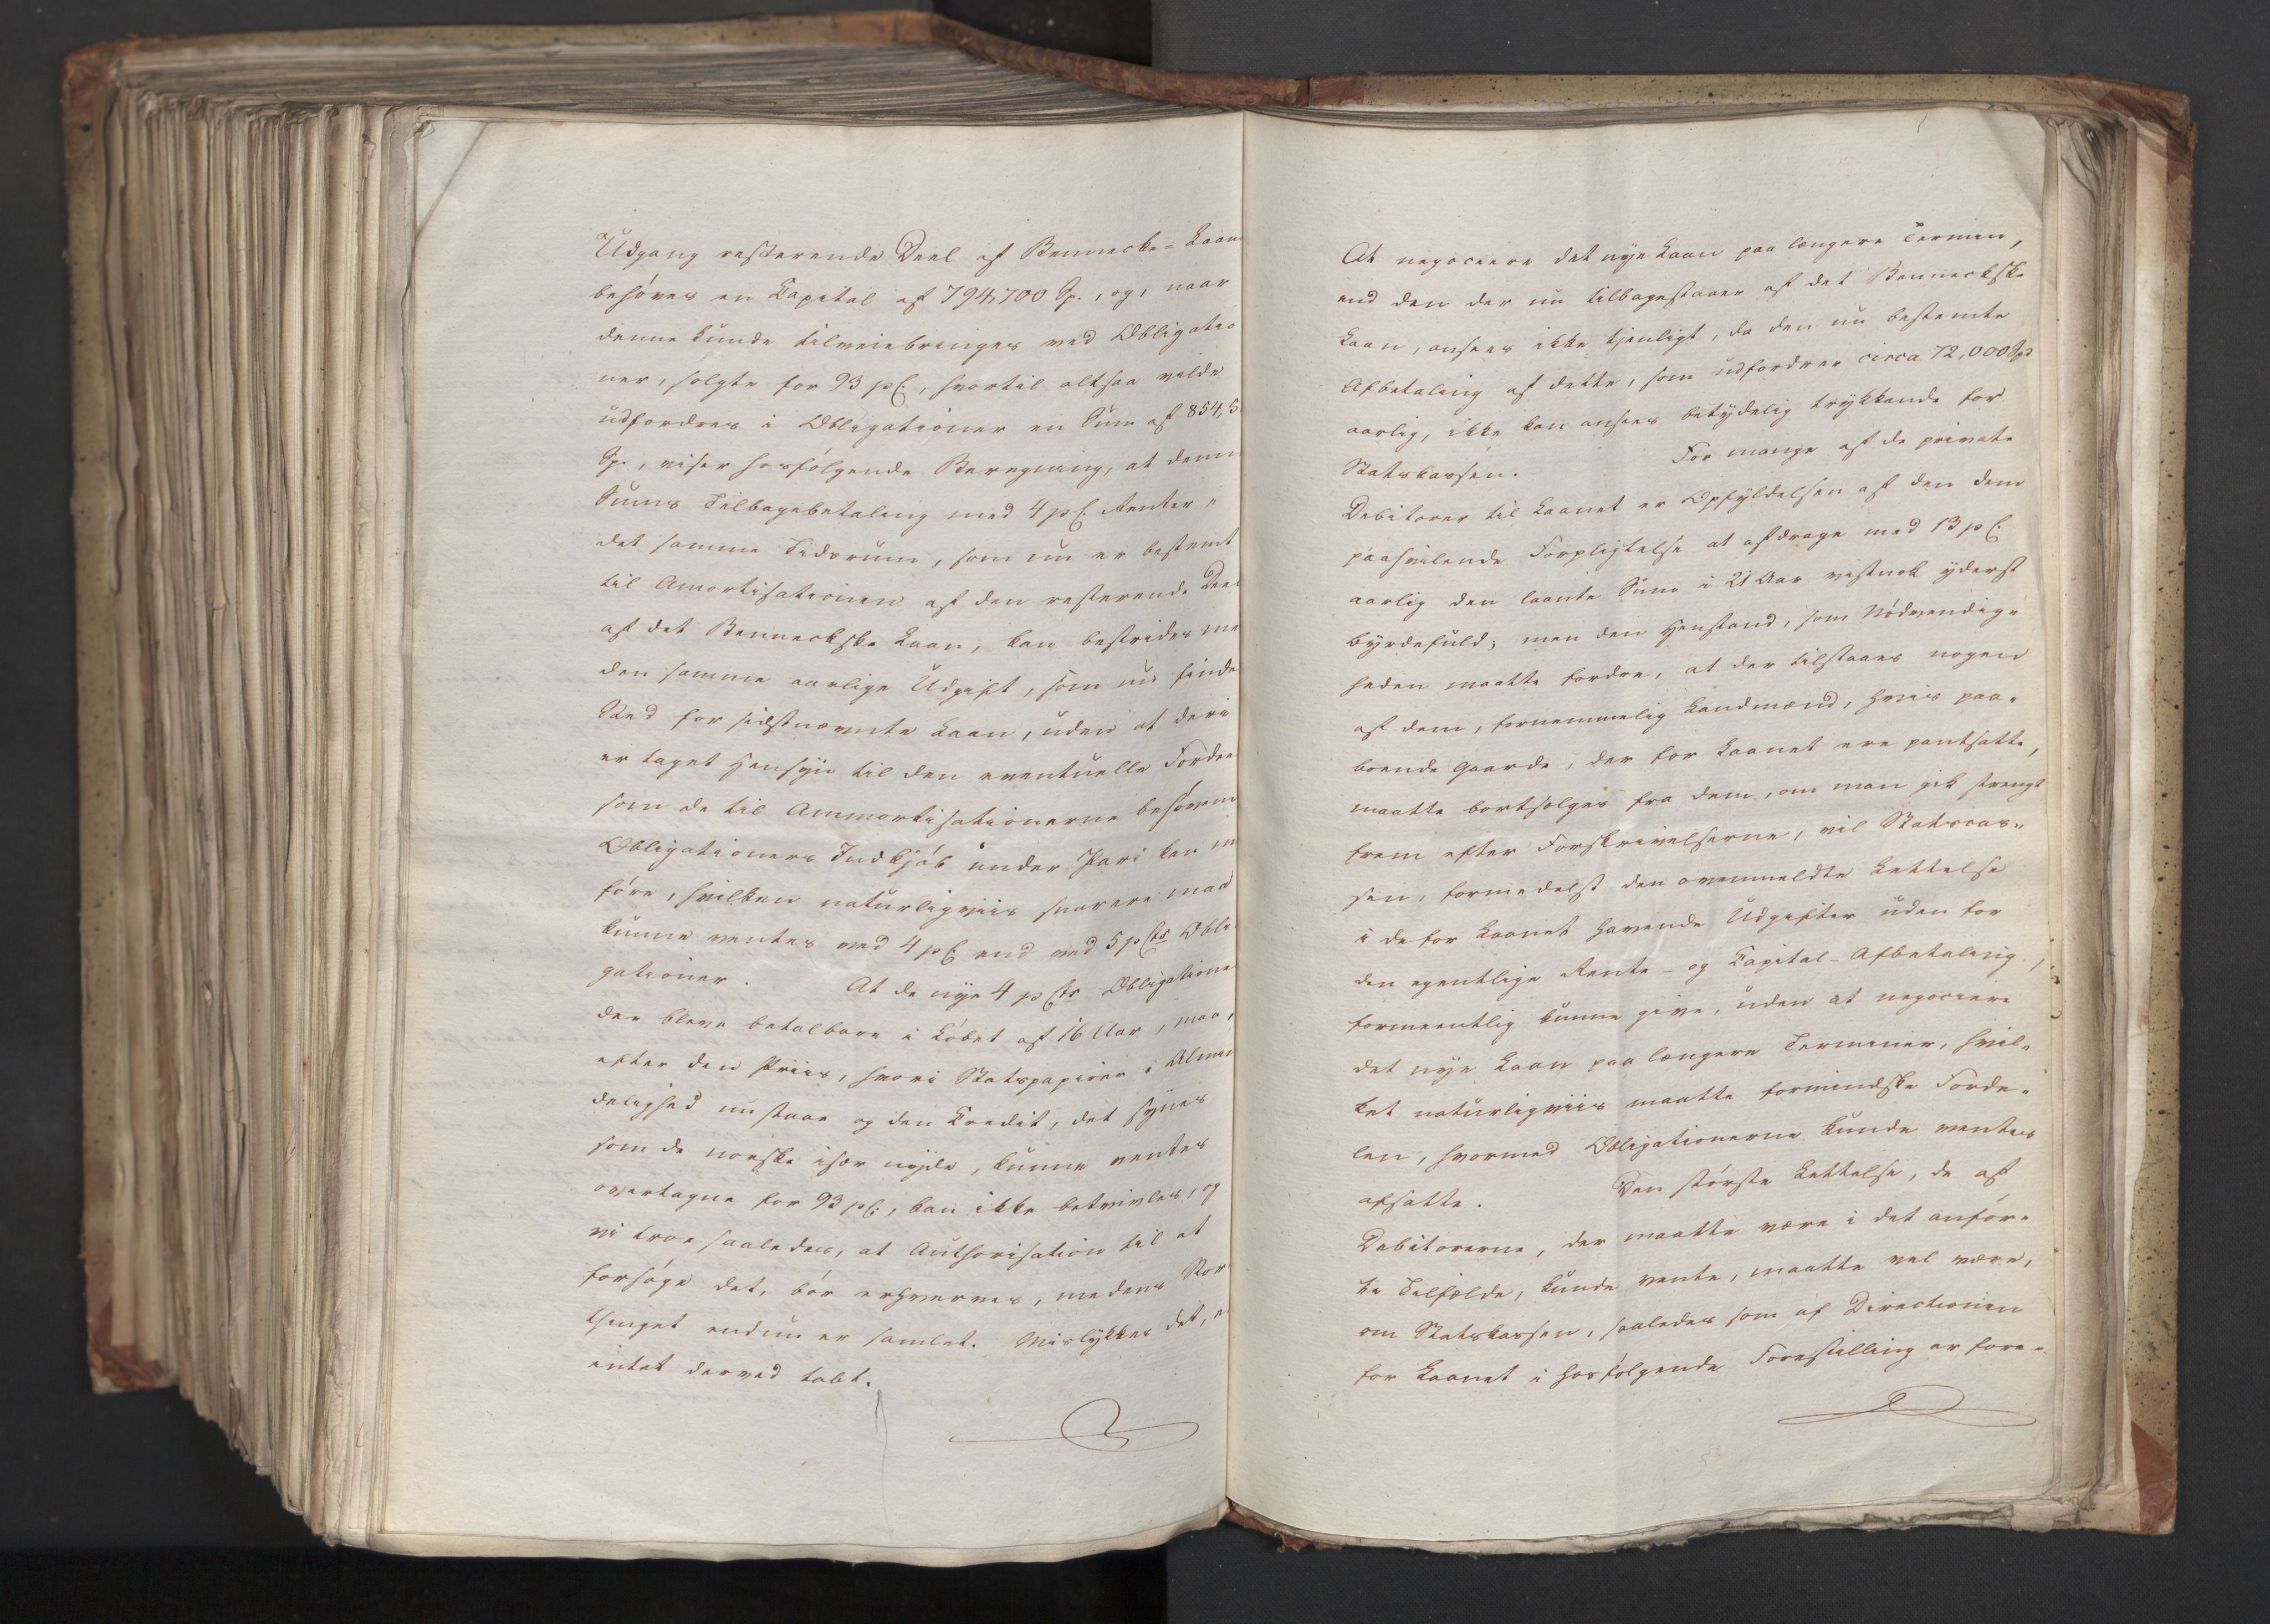 Udgang resterende Deel af Bennecke-Laan
behøves en Capital af 794,700 Sp., og, naar
denne kunde tilveiebringes ved Obligatio
ner, solgte for 93 pC., hvortil altsaa vilde
udfordres i Obligationer en Sum af 854,5
Sp., viser hosfølgende Beregning, at denn
Sums Tilbagebetaling med 4 pC. Renter i
det samme Tidsrum, som nu er bestemt
til Amortisationen af den resterende Deel
af det Benneckske Laan, kan bestrides me
den samme aarlige Udgift, som nu finde
Sted for sidstnævnte Laan, uden at deri
er taget Hensyn til den eventuelle Fordee
som de til Ammortisationerne behøven
Obligationers Indkjøb under Pari kan m
føre, hvilken naturligviis snarere maa
kunne ventes ved 4 pC. end ved 5 pCts Obli
gationer. At de nye 4 pCts Obligatione
der bleve betalbare i Løbet af 16 Aar, maa,
efter den Priis, hvori Statspapirer i Almin
delighed nu staae og den Credit, det synes
som de norske især nyde, kunne ventes
overtagne for 93 pC., kan ikke betvivles, og
vi troe saaledes, at Authorisation til at
forsøge det, bør erhverves, medens Stor
thinget endnu er samlet. Mislykkes det, e
intet derved tabt.
At negociere det nye Laan paa længere Termin,
end den der nu tilbagestaaer af det Benneckske
Laan, ansees ikke tjenligt, da den nu bestemte
Afbetaling af dette, som udfordrer circa 72,000 Spd
aarlig, ikke kan ansees betydelig trykkende for
Statskassen. For mange af de private
Debitorer til Laanet er Opfyldelsen af den dem
paahvilende Forpligtelse at afdrage med 13 pC.
aarlig den laante Sum i 21 Aar vistnok yderst
byrdefuld; men den Henstand, som Nødvendig-
heden maatte fordre, at der tilstaaes nogen
af dem, fornemmelig Landmænd, hvis paa-
boende Gaarde, der for Laanet ere pantsatte,
maatte bortsælges fra dem, om man gik strengt
frem efter Forskrivelserne, vil Statscas-
sen, formedelst den ovenmeldte Lettelse
i de for Laanet havende Udgifter uden for
den egentlige Rente- og Capital-Afbetaling,
formeentlig kunne give, uden at negociere
det nye Laan paa længere Terminer, hvil-
ket naturligviis maatte formindske Forde-
len, hvormed Obligationerne kunde ventes
afsatte. Den største Lettelse, de af
Debitorerne, der maatte være i det anfør-
te Tilfælde, kunde vente, maatte vel være,
om Statskassen, saaledes som af Directionen
for Laanet i hosfølgende Forestilling er fore-